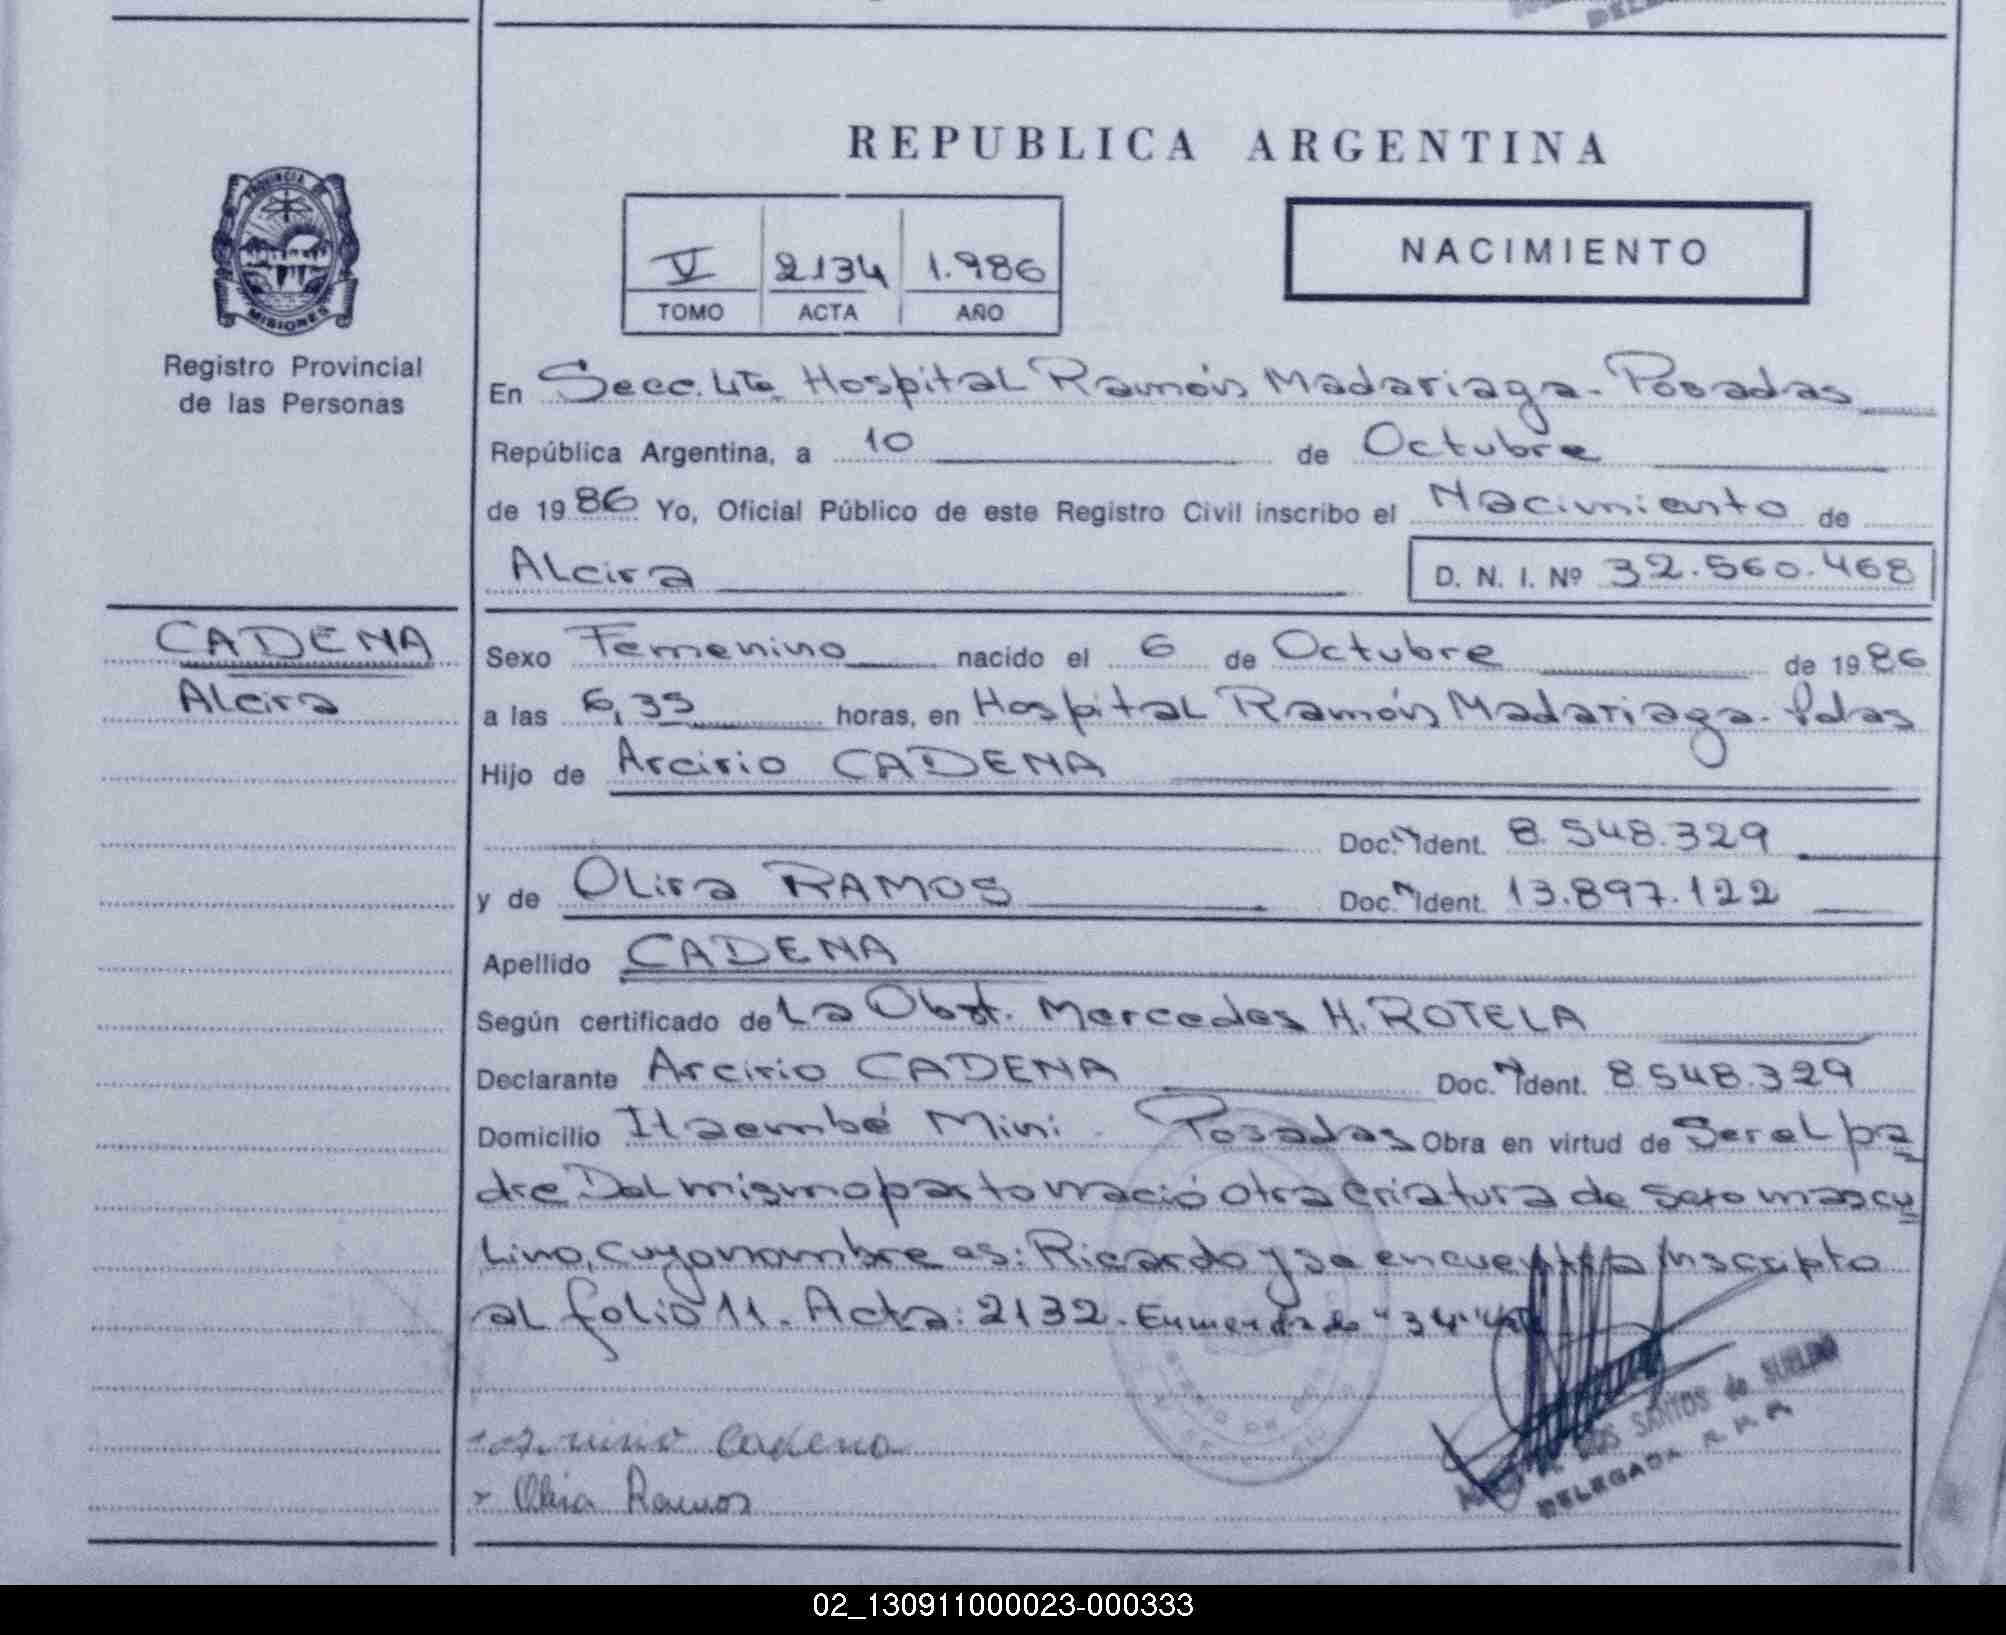 REPUBLICA ARGENTINA
PROVINCIA DE
MISIONES
Registro Provincial
de las Personas
V 2134 1.986
TOMO ACTA AÑO
NACIMIENTO
En Secc. 4ta. Hospital Ramón Madariaga - Posadas
República Argentina, a 10 de Octubre
de 1986 Yo, Oficial Público de este Registro Civil inscribo el Nacimiento de
Alcira D. N. I. Nº 32.560.468
CADENA
Alcira
Sexo Femenino nacido el 6 de Octubre de 1986
a las 6,35 horas, en Hospital Ramón Madariaga - Pdas
Hijo de Arcirio CADENA
Doc. Ident. 8.548.329
y de Olira RAMOS Doc. Ident. 13.897.122
Apellido CADENA
Según certificado de La Obst. Mercedes H. ROTELA
Declarante Arcirio CADENA Doc. Ident. 8.548.329
Domicilio Itaembé Mini - Posadas Obra en virtud de Ser el pa
dre Del mismo parto nació otra criatura de sexo mascu
lino, cuyo nombre es: Ricardo y se encuentra Inscripto
al folio 11. Acta: 2132. Enmendado "34"
cadena
x Olira Ramos
DOS SANTOS de SUELDO
DELEGADA
02_130911000023-000333